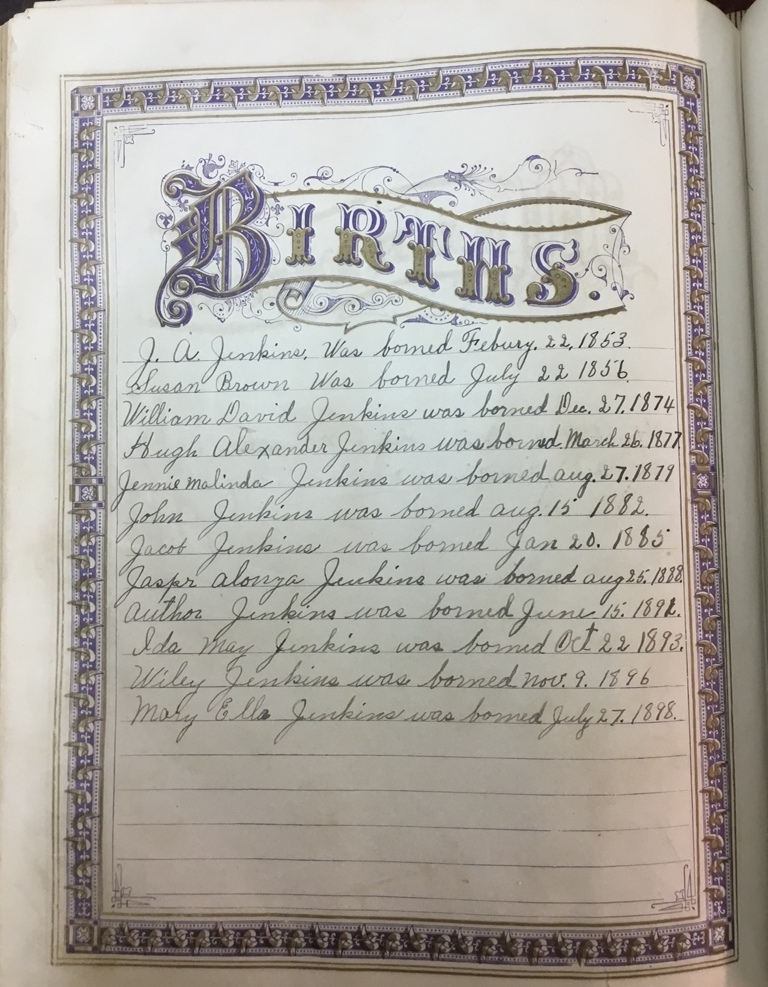 BIRTHS.
J. A. Jenkins. Was borned Febury. 22, 1853.
Susan Brown Was borned July 22 1856.
William David Jenkins was borned Dec. 27. 1874
Hugh Alexander Jenkins was borned. March 26. 1877.
Jennie Malinda Jenkins was borned aug. 27. 1879
John Jenkins was borned aug. 15 1882.
Jacob Jenkins was borned Jan 20. 1885
Jaspr alonza Jenkins was borned aug 25. 1888.
author Jenkins was borned June 15. 1891.
Ida May Jenkins was borned Oct 22 1893.
Wiley Jenkins was borned nov. 9. 1896
Mary Ella Jenkins was borned July 27. 1898.